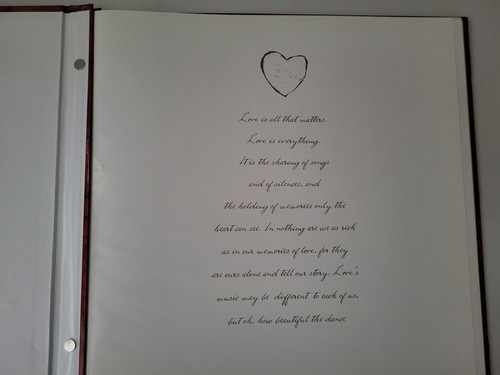 Love is all that matters.
Love is everything.
It is the sharing of songs
and of silences, and
the holding of memories only the
heart can see. In nothing are we as rich
as in our memories of love, for they
are ours alone and tell our story. Love's
music may be different to each of us,
but oh, how beautiful the dance